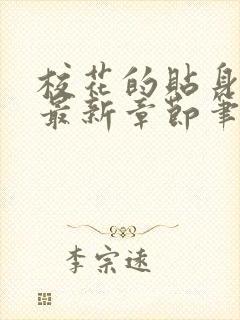 校花的贴身
最新章节笔
李宗远